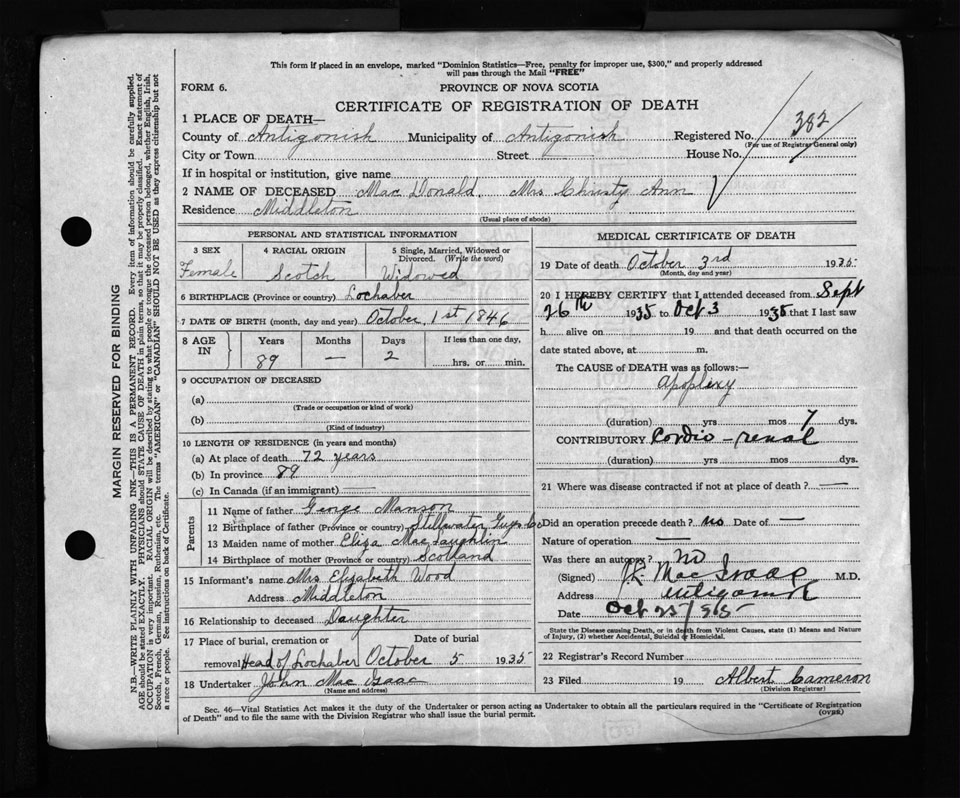 This form if placed in an envelope, marked "Dominion Statistics—Free, penalty for improper use, $300," and properly addressed
will pass through the Mail "FREE"
FORM 6.
PROVINCE OF NOVA SCOTIA
CERTIFICATE OF REGISTRATION OF DEATH
1 PLACE OF DEATH—
County of Antigonish Municipality of Antigonish Registered No. 382
(For use of Registrar General only)
City or Town Street House No.
If in hospital or institution, give name
2 NAME OF DECEASED Mac Donald, Mrs Christy Ann
Residence Middleton
(Usual place of abode)
PERSONAL AND STATISTICAL INFORMATION
3 SEX 4 RACIAL ORIGIN 5 Single, Married, Widowed or Divorced. (Write the word)
Female Scotch Widowed
6 BIRTHPLACE (Province or country) Lochaber
7 DATE OF BIRTH (month, day and year) October 1st 1846
8 AGE IN Years Months Days If less than one day,
89 — 2 hrs. or min.
9 OCCUPATION OF DECEASED
(a)
(Trade or occupation or kind of work)
(b)
(Kind of industry)
10 LENGTH OF RESIDENCE (in years and months)
(a) At place of death 72 years
(b) In province 89
(c) In Canada (if an immigrant) —
Parents
11 Name of father George Manson
12 Birthplace of father (Province or country) Stillwater Guys. Co
13 Maiden name of mother Eliza MacLaughlin
14 Birthplace of mother (Province or country) Scotland
15 Informant's name Mrs Elizabeth Wood
Address Middleton
16 Relationship to deceased Daughter
17 Place of burial, cremation or Date of burial
removal Head of Lochaber October 5 1935
18 Undertaker John MacIsaac
(Name and address)
MEDICAL CERTIFICATE OF DEATH
19 Date of death October 3rd 1935
(Month, day and year)
20 I HEREBY CERTIFY that I attended deceased from Sept
26th 1935 to Oct 3 1935 that I last saw
h alive on 19 and that death occurred on the
date stated above, at m.
The CAUSE OF DEATH was as follows:—
Apoplexy
(duration) yrs mos 7 dys.
CONTRIBUTORY Cordio-renal
(duration) yrs mos dys.
21 Where was disease contracted if not at place of death? —
Did an operation precede death? no Date of —
Nature of operation —
Was there an autopsy? no
(Signed) MacIsaac M.D.
Address Antigonish
Date Oct 25/
State the Disease causing Death, or in death from Violent Causes, state (1) Means and Nature
of Injury, (2) whether Accidental, Suicidal or Homicidal.
22 Registrar's Record Number
23 Filed 19 Albert Cameron
(Division Registrar)
Sec. 46—Vital Statistics Act makes it the duty of the Undertaker or person acting as Undertaker to obtain all the particulars required in the "Certificate of Registration
of Death" and to file the same with the Division Registrar who shall issue the burial permit.
(OVER)
MARGIN RESERVED FOR BINDING
N.B.—WRITE PLAINLY WITH UNFADING INK—THIS IS A PERMANENT RECORD. Every item of information should be carefully supplied.
AGE should be stated EXACTLY. PHYSICIANS should STATE CAUSE OF DEATH in plain terms, so that it may be properly classified. Exact statement of
OCCUPATION is very important. RACIAL ORIGIN will be described by stating to what people or tongue the deceased person belonged, whether English, Irish,
Scotch, French, German, Russian, Ruthenian, etc. The terms "AMERICAN" or "CANADIAN" SHOULD NOT BE USED as they express citizenship but not
a race or people. See instructions on back of Certificate.